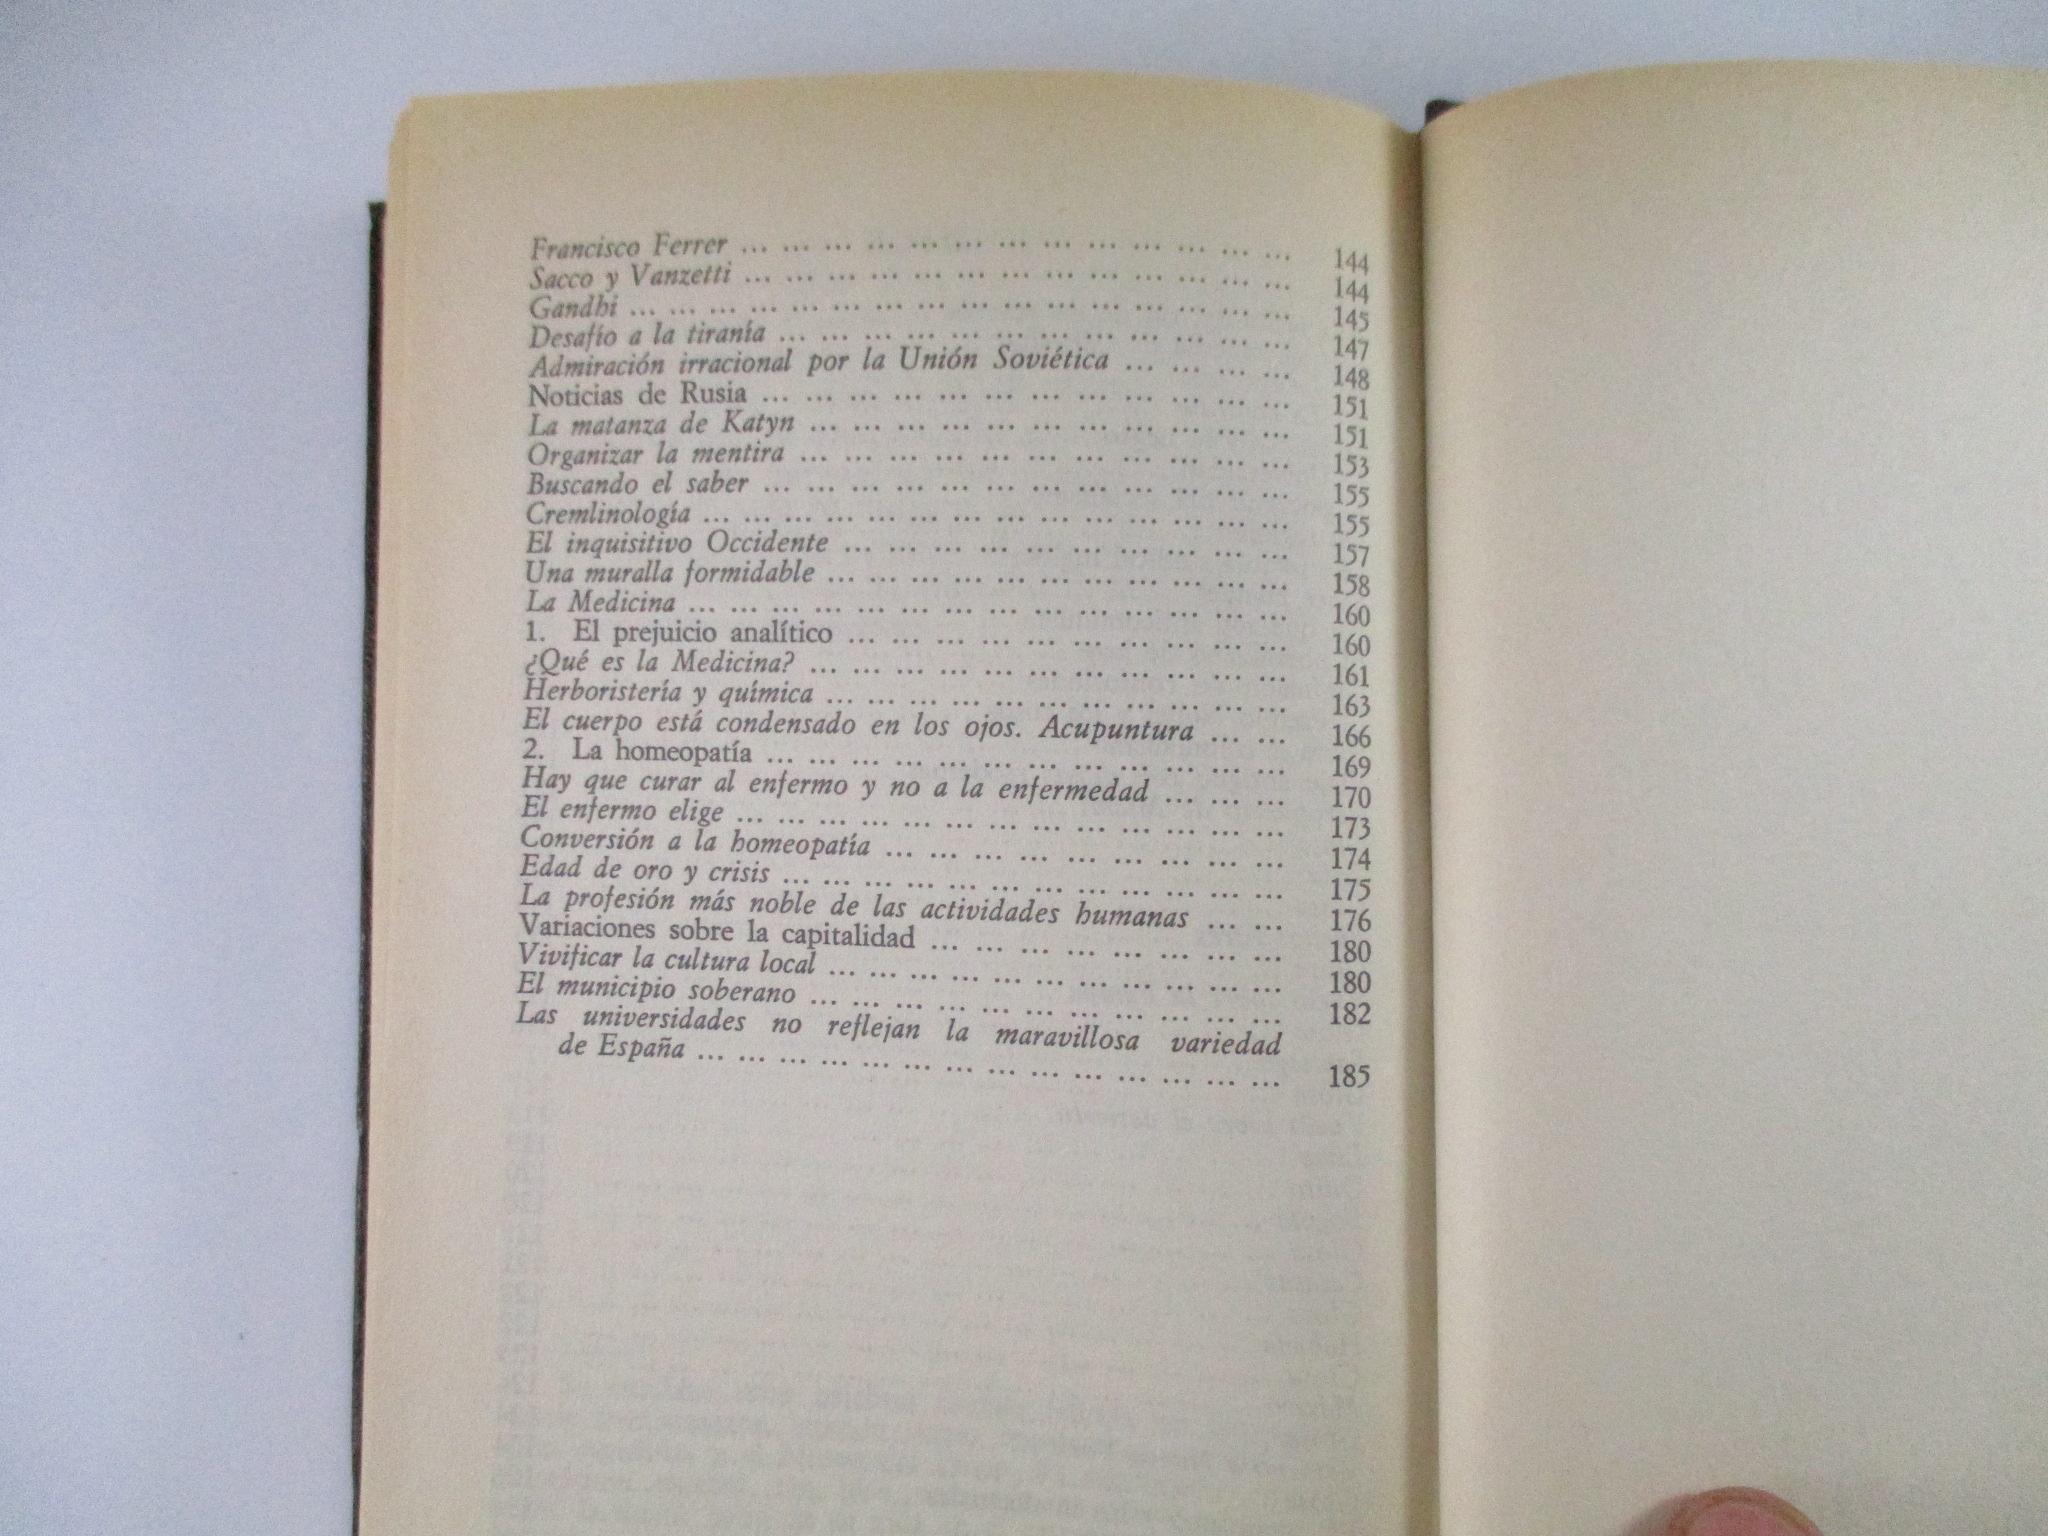 Francisco Ferrer ... ... ... ... ... ... ... ... ... ... ... ... ... 144
Sacco y Vanzetti ... ... ... ... ... ... ... ... ... ... ... ... ... 144
Gandhi ... ... ... ... ... ... ... ... ... ... ... ... ... ... ... ... 145
Desafío a la tiranía ... ... ... ... ... ... ... ... ... ... ... ... 147
Admiración irracional por la Unión Soviética ... ... ... ... 148
Noticias de Rusia ... ... ... ... ... ... ... ... ... ... ... ... 151
La matanza de Katyn ... ... ... ... ... ... ... ... ... ... ... 151
Organizar la mentira ... ... ... ... ... ... ... ... ... ... ... 153
Buscando el saber ... ... ... ... ... ... ... ... ... ... ... ... 155
Cremlinología ... ... ... ... ... ... ... ... ... ... ... ... ... ... 155
El inquisitivo Occidente ... ... ... ... ... ... ... ... ... ... 157
Una muralla formidable ... ... ... ... ... ... ... ... ... ... ... 158
La Medicina ... ... ... ... ... ... ... ... ... ... ... ... ... ... 160
1. El prejuicio analítico ... ... ... ... ... ... ... ... ... ... 160
¿Qué es la Medicina? ... ... ... ... ... ... ... ... ... ... ... 161
Herboristería y química ... ... ... ... ... ... ... ... ... ... ... 163
El cuerpo está condensado en los ojos. Acupuntura ... ... 166
2. La homeopatía ... ... ... ... ... ... ... ... ... ... ... ... 169
Hay que curar al enfermo y no a la enfermedad ... ... ... 170
El enfermo elige ... ... ... ... ... ... ... ... ... ... ... ... ... 173
Conversión a la homeopatía ... ... ... ... ... ... ... ... ... 174
Edad de oro y crisis ... ... ... ... ... ... ... ... ... ... ... ... 175
La profesión más noble de las actividades humanas ... ... 176
Variaciones sobre la capitalidad ... ... ... ... ... ... ... ... 180
Vivificar la cultura local ... ... ... ... ... ... ... ... ... ... ... 180
El municipio soberano ... ... ... ... ... ... ... ... ... ... ... 182
Las universidades no reflejan la maravillosa variedad
de España ... ... ... ... ... ... ... ... ... ... ... ... ... ... 185